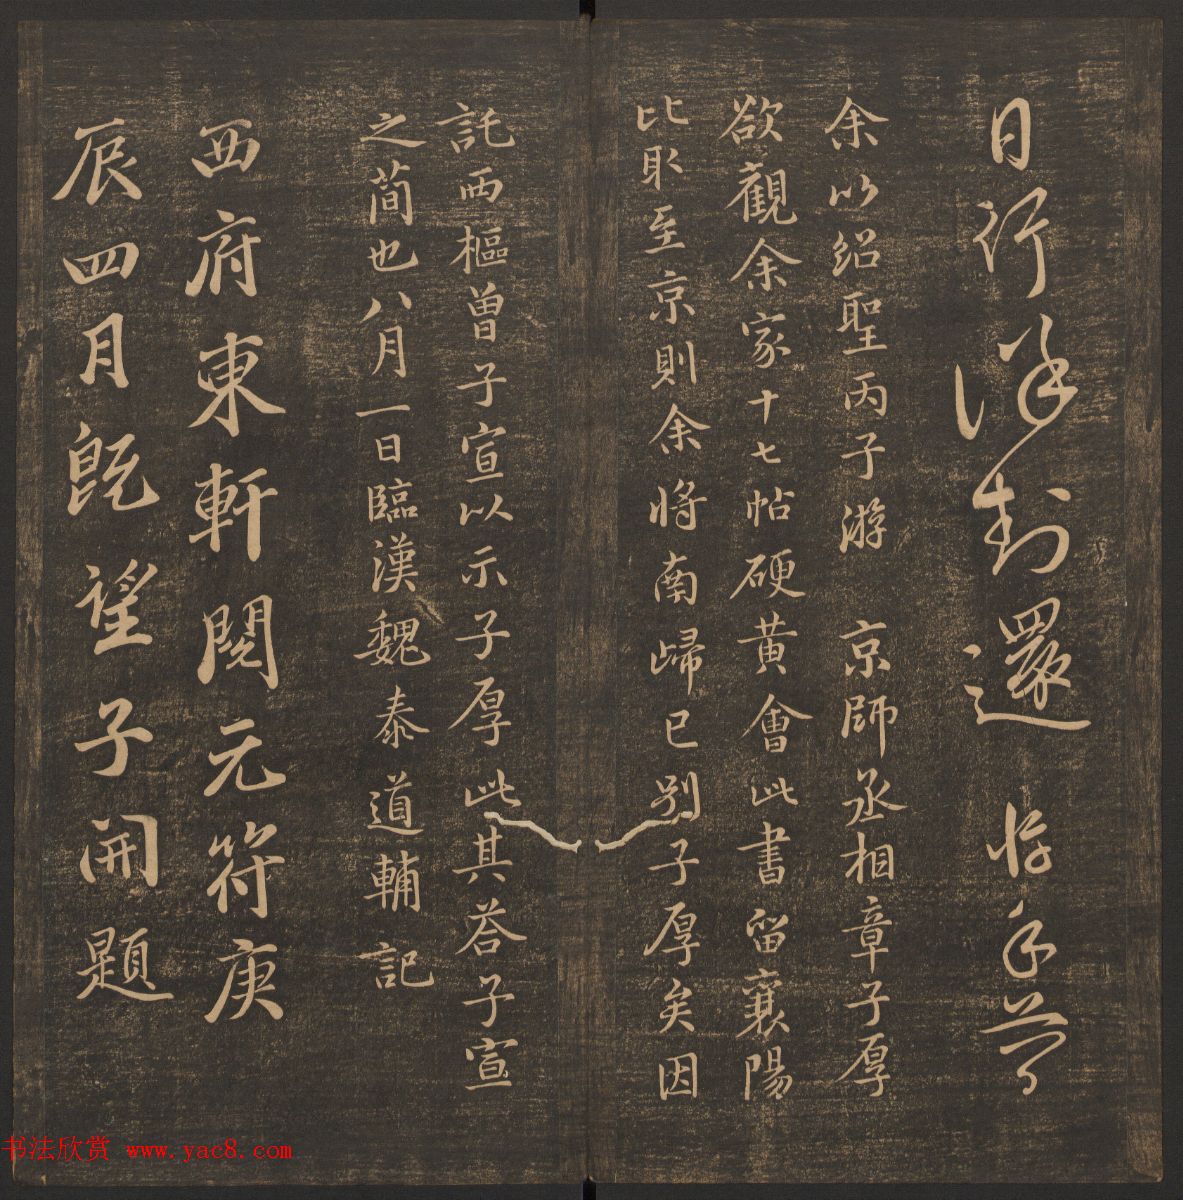 日行深封還
余以紹聖丙子游 京師丞相章子厚
欲觀余家十七帖硬黃會此書留襄陽
比取至京則余將南歸已別子厚矣因
託西樞曾子宣以示子厚此其荅子宣
之簡也八月一日臨漢魏泰道輔記
西府東軒閱元符庚
辰四月既望子開題
书法欣赏 www.yac8.com